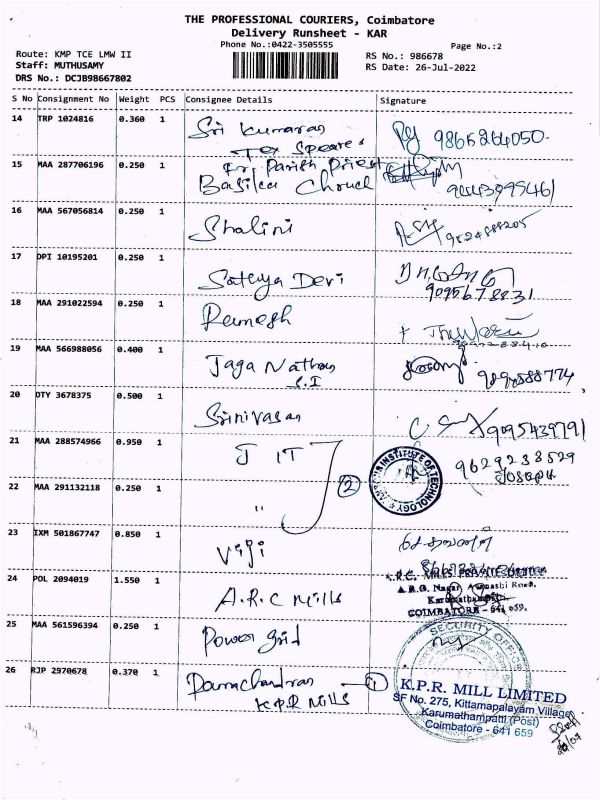 THE PROFESSIONAL COURIERS, Coimbatore
Delivery Runsheet - KAR
Phone No.:0422-3505555
Page No.:2
Route: KMP TCE LMW II
Staff: MUTHUSAMY
DRS No.: DCJB98667802
RS No.: 986678
RS Date: 26-Jul-2022
S No Consignment No Weight PCS Consignee Details Signature
14 TRP 1024816 0.360 1 Sri Kumaran 9865264050.
Tex Speares
15 MAA 287706196 0.250 1 Fr. Parish Priest
Basilica Church
16 MAA 567056814 0.250 1 Shalini 9524888205
17 DPI 10195201 0.250 1 Sathya Devi
9095678831
18 MAA 291022594 0.250 1 Ramesh
19 MAA 566988056 0.400 1 Jaga Nathan
S.I
20 DTY 3678375 0.500 1 Srinivasan 9095439791
21 MAA 288574966 0.950 1 JIT 9629238529
Joseph
INSTITUTE OF TECHNOLOGY
22 MAA 291132118 0.250 1 " 2
23 IXM 501867747 0.850 1 Viji
24 POL 2094019 1.550 1 A.R.C Mills
MILLS PRIVATE LIMITED
A.R.G. Nagar, Avinashi Road,
Karumathampatti
COIMBATORE - 641 659.
25 MAA 561596394 0.250 1 Power grid
SECURITY OFFICE
26 RJP 2970678 0.370 1 Ramachandran 1
K.P.R Mills
K.P.R. MILL LIMITED
SF No. 275, Kittamapalayam Village
Karumathampatti (Post)
Coimbatore - 641 659